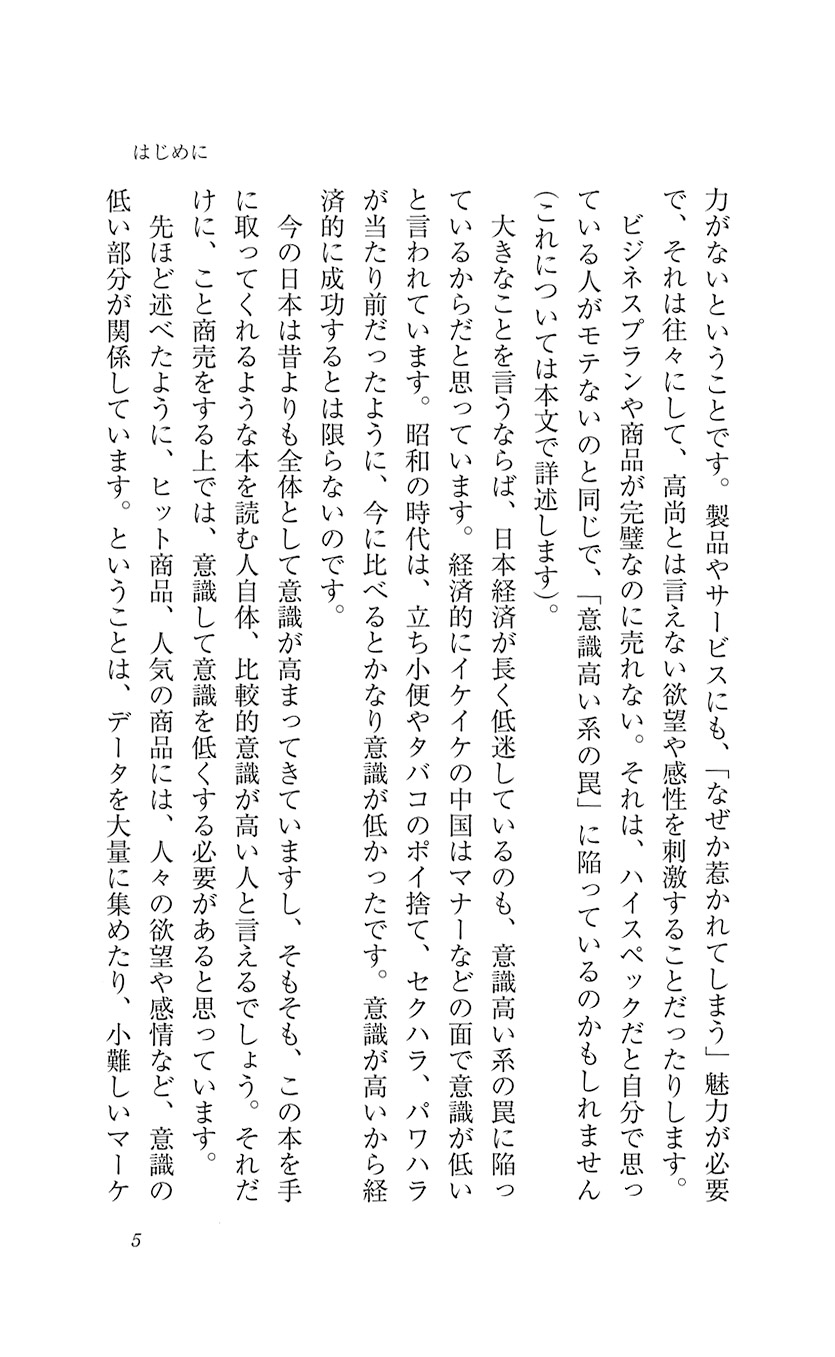 はじめに
力がないということです。製品やサービスにも、「なぜか惹かれてしまう」魅力が必要
で、それは往々にして、高尚とは言えない欲望や感性を刺激することだったりします。
ビジネスプランや商品が完璧なのに売れない。それは、ハイスペックだと自分で思っ
ている人がモテないのと同じで、「意識高い系の罠」に陥っているのかもしれません
(これについては本文で詳述します)。
大きなことを言うならば、日本経済が長く低迷しているのも、意識高い系の罠に陥っ
ているからだと思っています。経済的にイケイケの中国はマナーなどの面で意識が低い
と言われています。昭和の時代は、立ち小便やタバコのポイ捨て、セクハラ、パワハラ
が当たり前だったように、今に比べるとかなり意識が低かったです。意識が高いから経
済的に成功するとは限らないのです。
今の日本は昔よりも全体として意識が高まってきていますし、そもそも、この本を手
に取ってくれるような本を読む人自体、比較的意識が高い人と言えるでしょう。それだ
けに、こと商売をする上では、意識して意識を低くする必要があると思っています。
先ほど述べたように、ヒット商品、人気の商品には、人々の欲望や感情など、意識の
低い部分が関係しています。ということは、データを大量に集めたり、小難しいマーケ
5